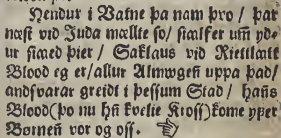 Hendur i Vatne þa nam þvo / þar
næst vid Juda mællte so / siaelfer um yd-
ur siaed þier / Saklaus vid Riettlaatt
Blood eg er/allur Almwgeñ uppa þad/
andsvarar greidt i þessum Stad / hañs
Blood(þo nu hñ kvelie Kross)kome yfer
Børneñ vor og oss.